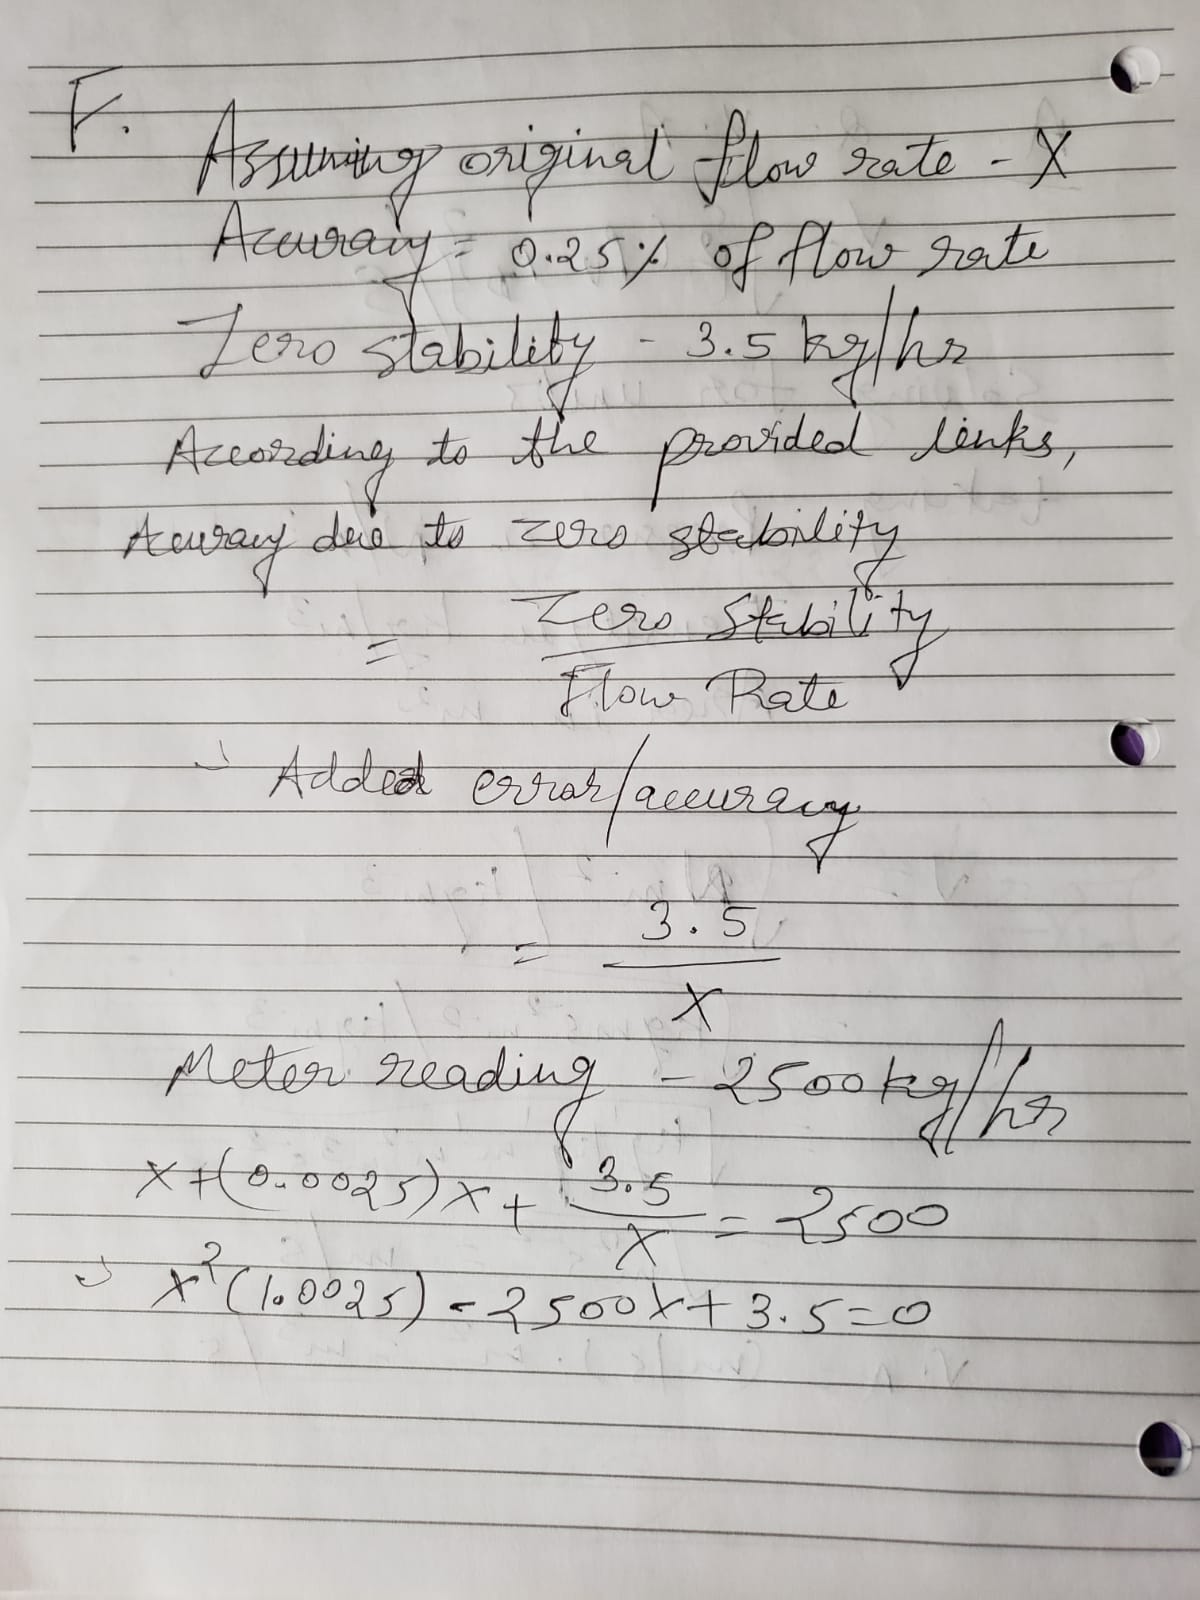 F.
Assuming original flow rate - X
Accuracy = 0.25% of flow rate
Zero stability - 3.5 kg/hr
According to the provided links,
Accuracy due to zero stability
= Zero Stability
Flow Rate
Added error/accuracy
= 3.5
X
Meter reading - 2500 kg/hr
x+(0.0025)x + 3.5/x = 2500
x²(1.0025) - 2500x + 3.5 = 0